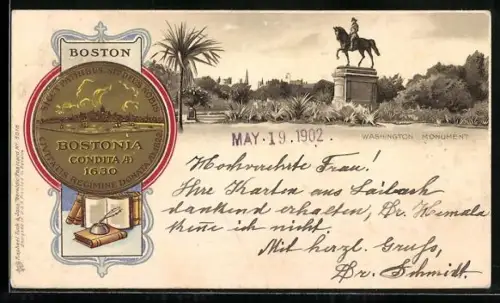 BOSTON
SICUT PATRIBUS SIT DEUS NOBIS
BOSTONIA
CONDITA AD
1630
CIVITATIS REGIMINE DONATA AD 1822
MAY 19. 1902
WASHINGTON MONUMENT
Hochverehrte Frau!
Ihre Karten aus Laibach
dankend erhalten, Dr. Hemala
kenne ich nicht.
Mit herzl. Gruß,
Dr. Schmidt.
Raphael Tuck & Sons'